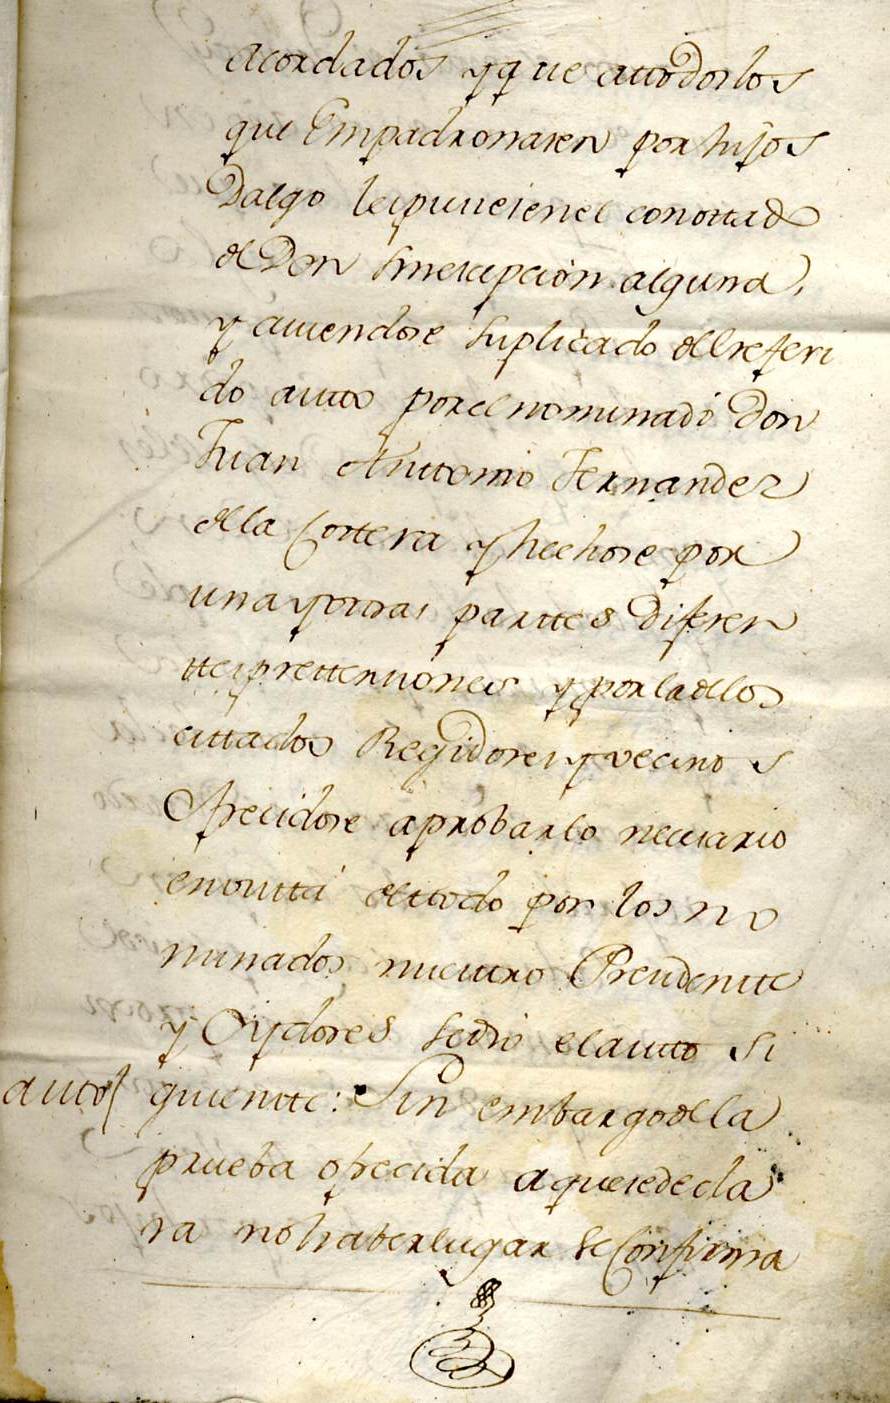 acordados yque attodos los
que Empadronaren por hijos
Dalgo les pusiesen el conottado
de Don Sin escepcion alguna,
y auiendose Suplicado del referi
do autto por el nominado Don
Juan Anttonio Fernandez
de la Corttera y hechose por
una y otras parttes diferen
ttes prettensiones y por la de los
cittados Regidores y vecinos
Ofrecidose aprobar lo necesario
en vistta de ttodo por los no
minados nuesttro Presidentte
y Oydores Se dio el autto Si
auto guientte: Sin embargo de la
prueba ofrecida a que se decla
ra no haber lugar Se Confirma